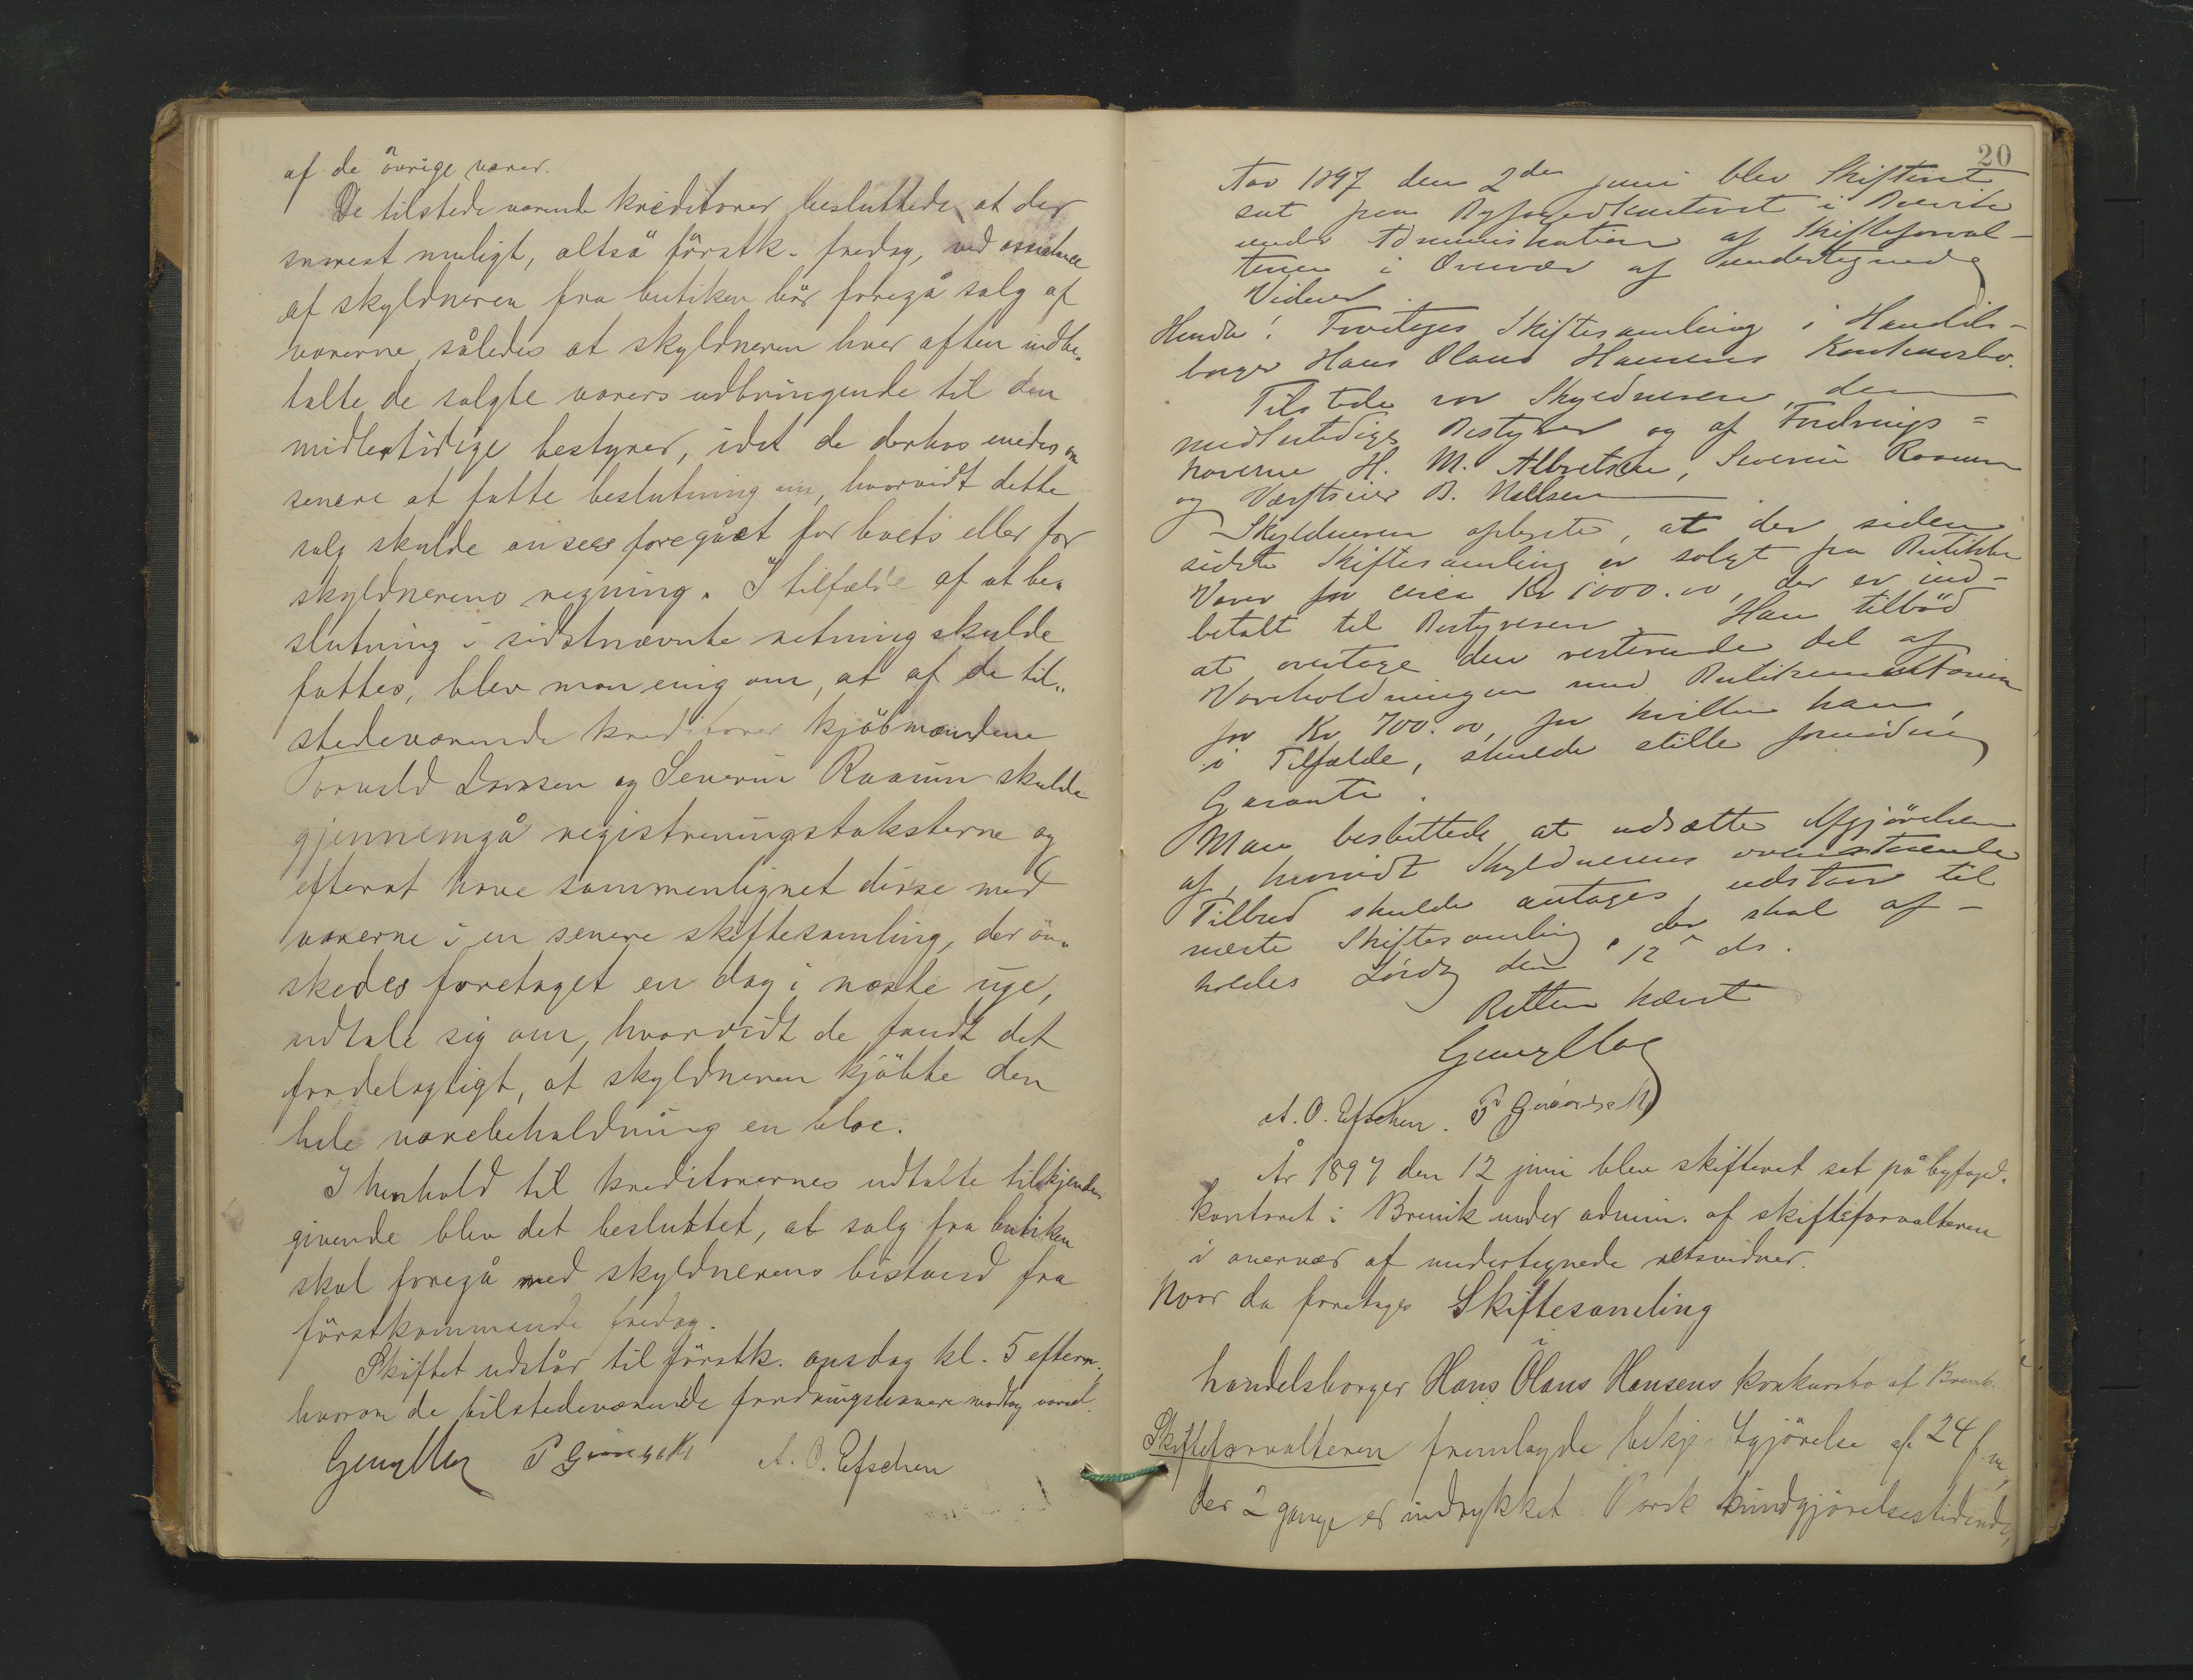 af de övrige varer.
De tilstedeværende kreditorer besluttede at der
snarest muligt, altså förstk. fredag, ved assistance
af skyldneren fra butiken bör foregå salg af
varerne således at skyldneren hver aften indbe„
talte de solgte varers udbringende til den
midlertidige bestyrer, idet de derhos enedes om
senere at fatte beslutning om, hvorvidt dette
salg skulde ansees foregået for boets eller for
skyldnerens regning. I tilfælde af at be„
slutning i sidstnævnte retning skulde
fattes, blev man enig om, at af de til„
stedeværende kreditorer kjöbmændene
Torvald Larssen og Severin Raaum skulde
gjennemgå registreringstaksterne og
efterat have sammenlignet disse med
varerne i en senere skiftesamling, der ön„
skedes foretaget en dag i næste uge,
udtale sig om, hvorvidt de fandt det
fordelagtigt, at skyldneren kjöbte den
hele varebeholdning en bloc.
I henhold til kreditorernes udtalte tilkjende„
givende blev det besluttet, at salg fra butiken
skal foregå med skyldnerens bistand fra
förstkommende fredag.
Skiftet udstår til förstk. onsdag kl. 5 efterm.,
hvorom de tilstedeværende fordringshavere modtog varsel.
A. O. Efschen
20
Aar 1897 den 2den juni blev Skifteret
sat paa Byfogedkontoret i Brevik
under Administration af Skifteforval-
teren i Overvær af undertegnede
Vidner.
Hvorda: Foretages Skiftesamling i Handels-
borger Hans Olaus Hansens Konkursbo.
Tilstede var Skyldneren, den
midlertidige Bestyrer og af Fordrings=
haverne H. M. Albretsen, Severin Raaum
og Værftseier B. Nielsen
Skyldneren oplyste, at der siden
sidste Skiftesamling er solgt fra Butikken
Varer for circa Kr 1000.00, der er ind-
betalt til Bestyreren. Han tilböd
at overtage den resterende del af
Varebeholdningen med Butikinventariet
for Kr. 700.00, for hvilken han,
i Tilfælde, skulde stille fornöden
Garanti.
Man besluttede at udsætte Afgjörelsen
af, hvorvidt Skyldnerens ovenstaaende
Tilbud skulde antages, udstaar til
næste Skiftesamling, der skal af-
holdes Lördag den 12te ds.
Retten hævet
A. O. Efschen.
År 1897 den 12 juni blev skifteret sat på byfoged„
kontoret i Brevik under admin. af skifteforvalteren
i overvær af undertegnede retsvidner.
Hvor da foretoges Skiftesamling
i
handelsborger Hans Olaus Hansens konkursbo af Brevik.
Skifteforvalteren fremlagde bekjendtgjörelse af 24 f. m.,
der 2 gange er indrykket Norsk kundgjörelsestidende,